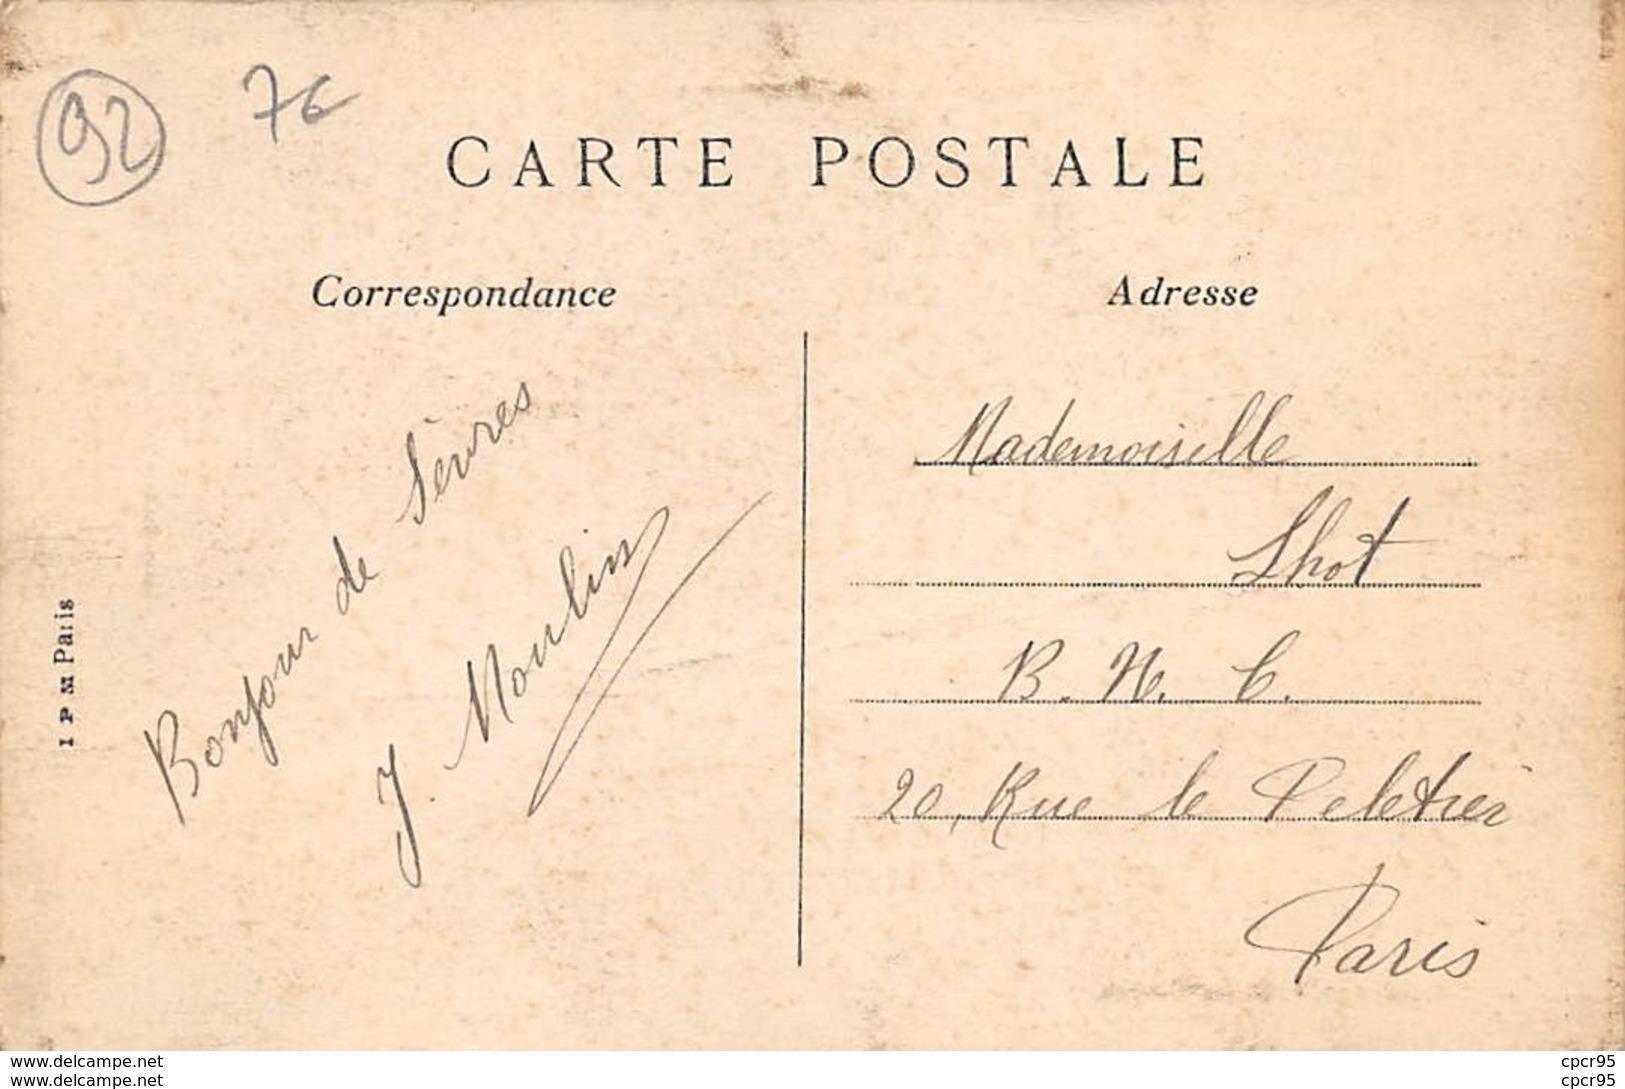 92
7€
CARTE POSTALE
Correspondance
Adresse
Bonjour de Sèvres
J. Moulin
I P M Paris
Mademoiselle
Lhot
B. N. C.
20, Rue le Peletier
Paris
www.delcampe.net
cpcr95
www.delcampe.net
cpcr95